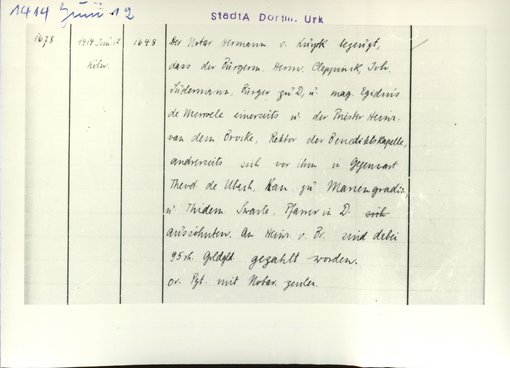 1414 Juni 12
StadtA Dortm. Urk
1673
1414 Juni 12
Köln.
1648
Der Notar Hermann v. bezeugt,
dass der Bürgerm. Herm. Cleppinck, Joh.
Südermann, Bürger zu D, u. mag. Egidius
de Mervele einerseits u. der Priester Heinr.
van dem Broike, Rektor der Benediktskapelle,
andrerseits sich vor ihm in Gegenwart
Theod. de Ubach, Kan. zu Mariengraden
u. Thidem. Swarte, Pfarrer in D. sich
aussöhnten. An Heinr. v. Br. sind dabei
95 rh. Goldgld. gezahlt worden.
Or. Pgt. mit Notar.